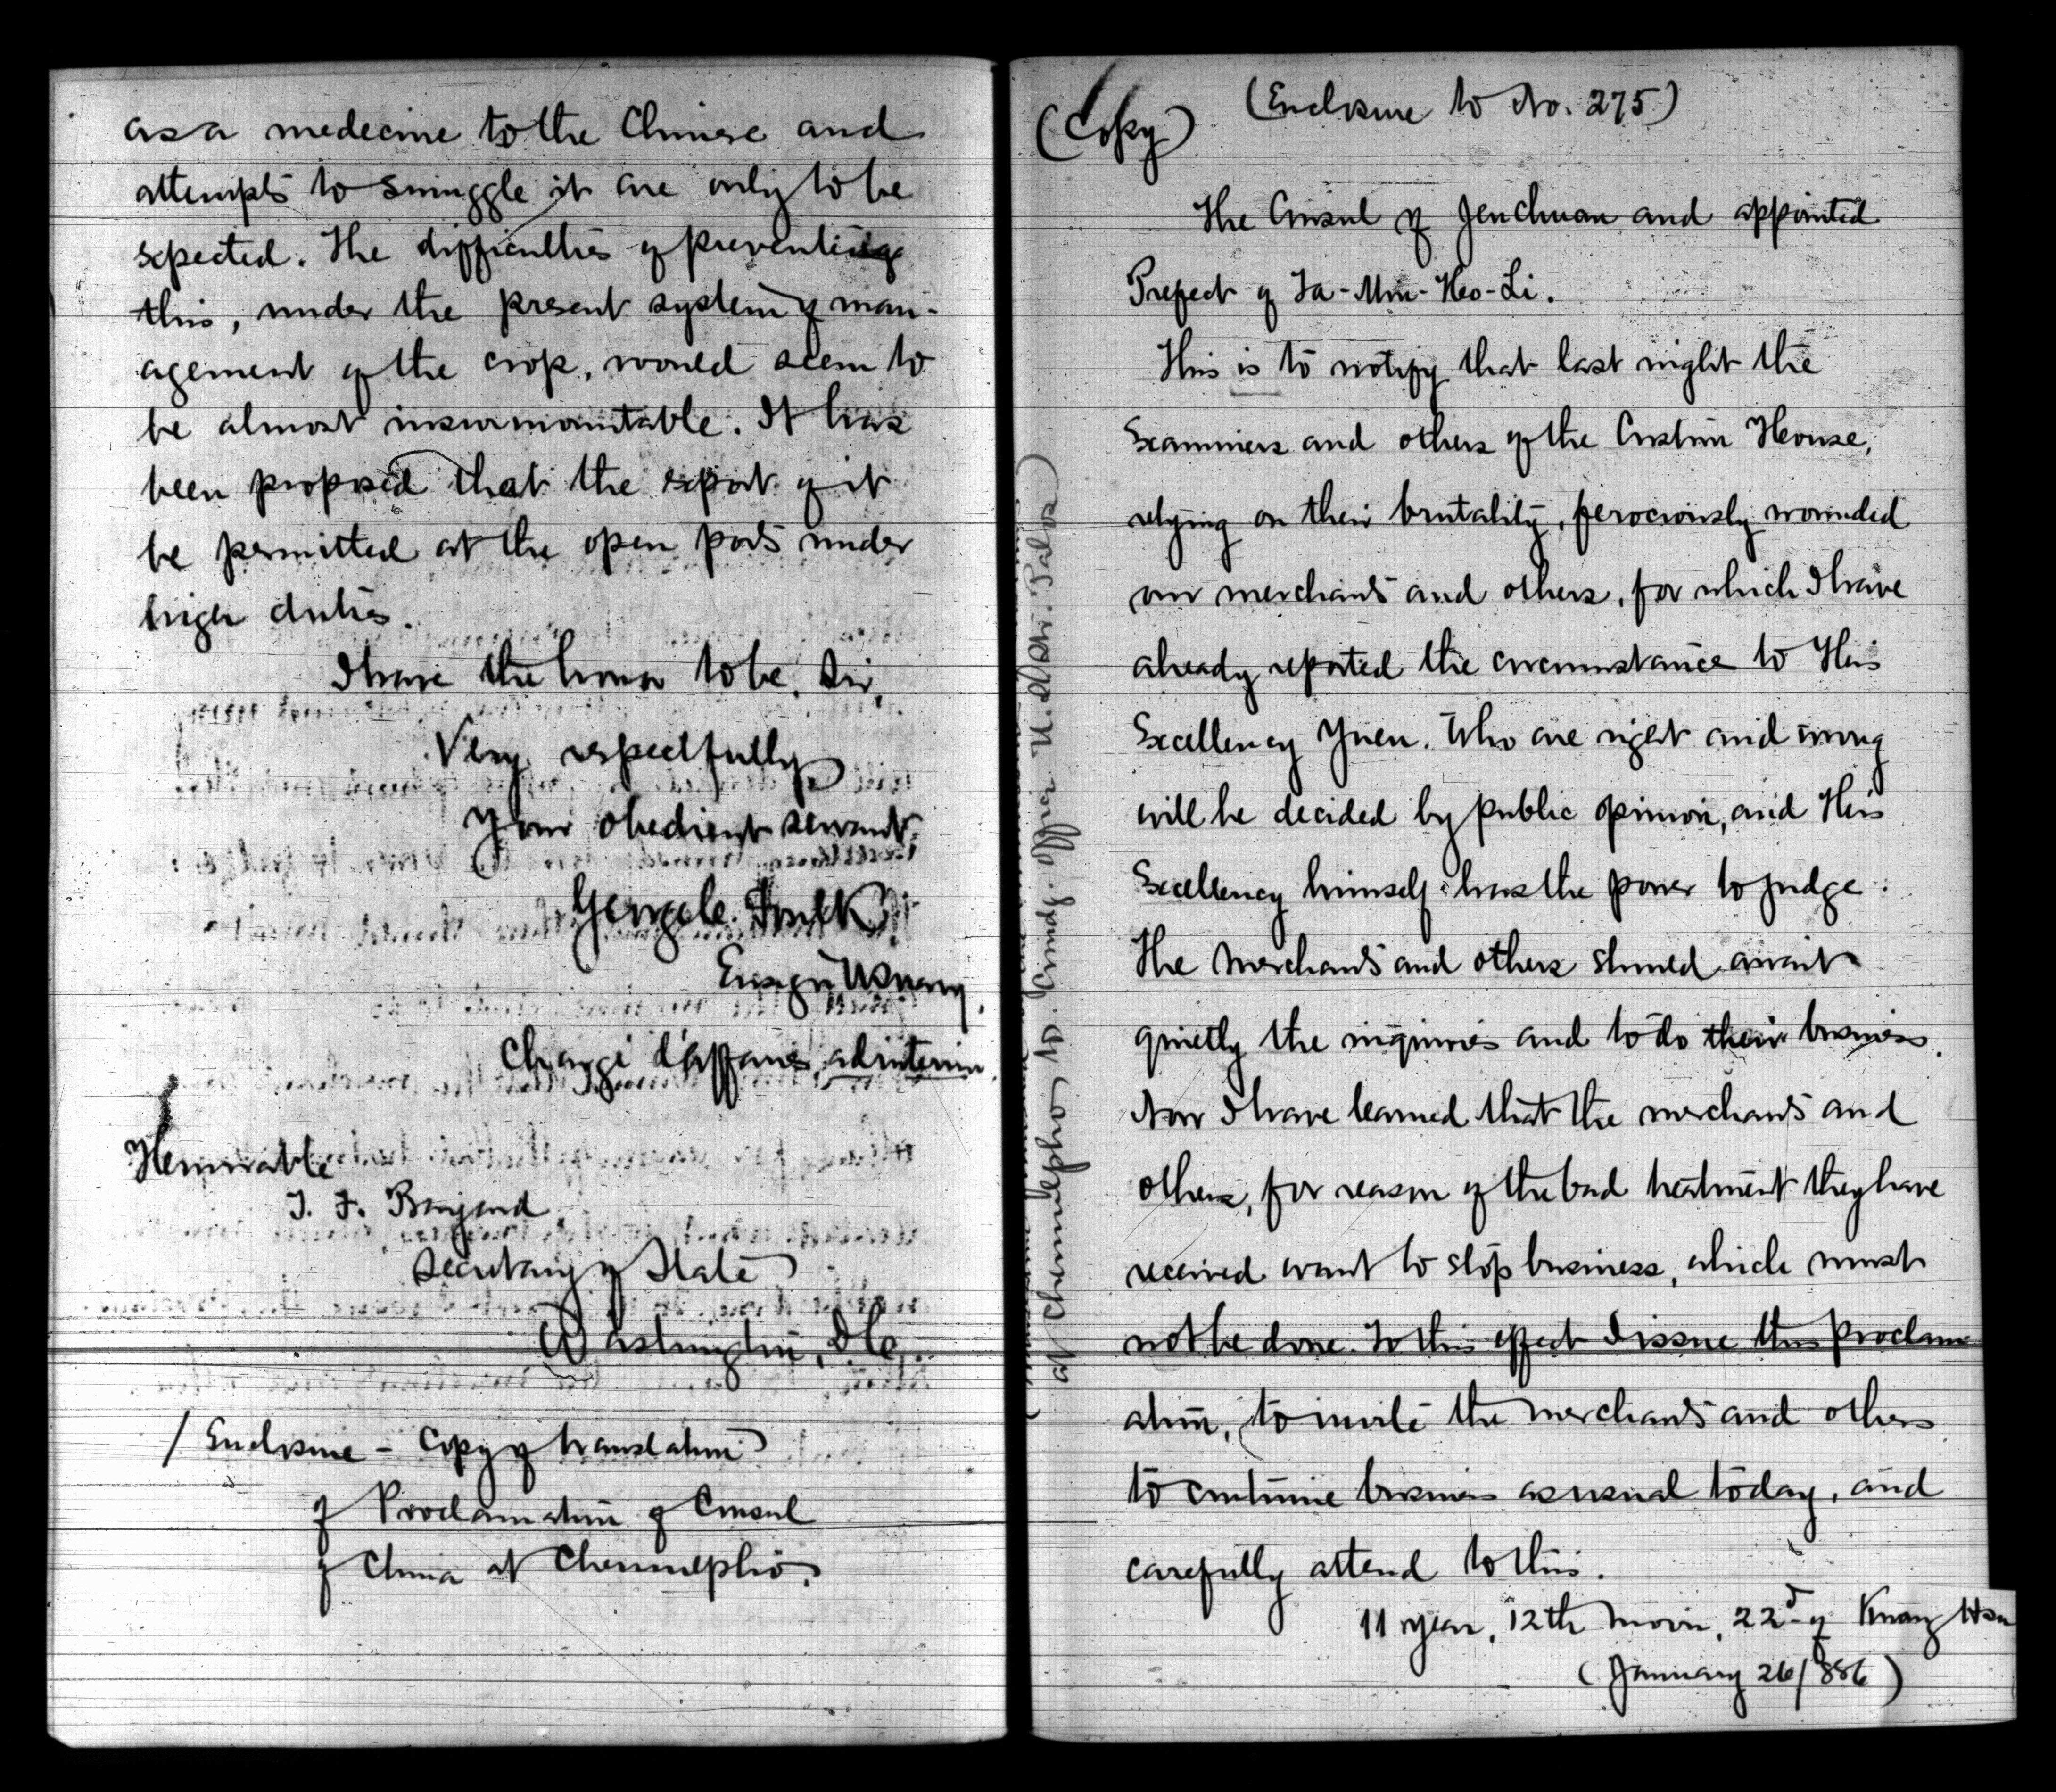 as a medecine to the Chinese and
attempts to smuggle it are only to be
expected. The difficulties of preventing
this, under the present system of man-
agement of the crop, would seem to
be almost insurmountable. It has
been proposed that the export of it
be permitted at the open ports under
high duties.
I have the honor to be, Sir,
Very respectfully
Your obedient servant,
George C. Foulk
Ensign U.S. Navy,
Chargé d'affaires ad interim.
Honorable
T. F. Bayard
Secretary of State
Washington, D.C.
1 Enclosure - Copy of translation
of Proclamation of Consul
of China at Chemulpho.
(Enclosure to No. 275)
(Copy)
The Consul of Jenchuan and appointed
Prefect of
This is to notify that last night the
Examiners and others of the Custom House,
relying on their brutality, ferociously wounded
our merchants and others, for which I have
already reported the circumstance to His
Excellency Yuen. Who are right and wrong
will be decided by public opinion, and His
Excellency himself has the power to judge:
The Merchants and others should await
quietly the inquiries and to do their business.
Now I have learned that the merchants and
others, for reason of the bad treatment they have
received want to stop business, which must
not be done. To this effect I issue this proclam-
ation, to invite the merchants and others
to continue business as usual today, and
carefully attend to this.
11 year, 12th moon, 22d of Kuang Hsu
(January 26/886)
at Chemulpho, to Comdg. Officer U.S.Str. Palos)